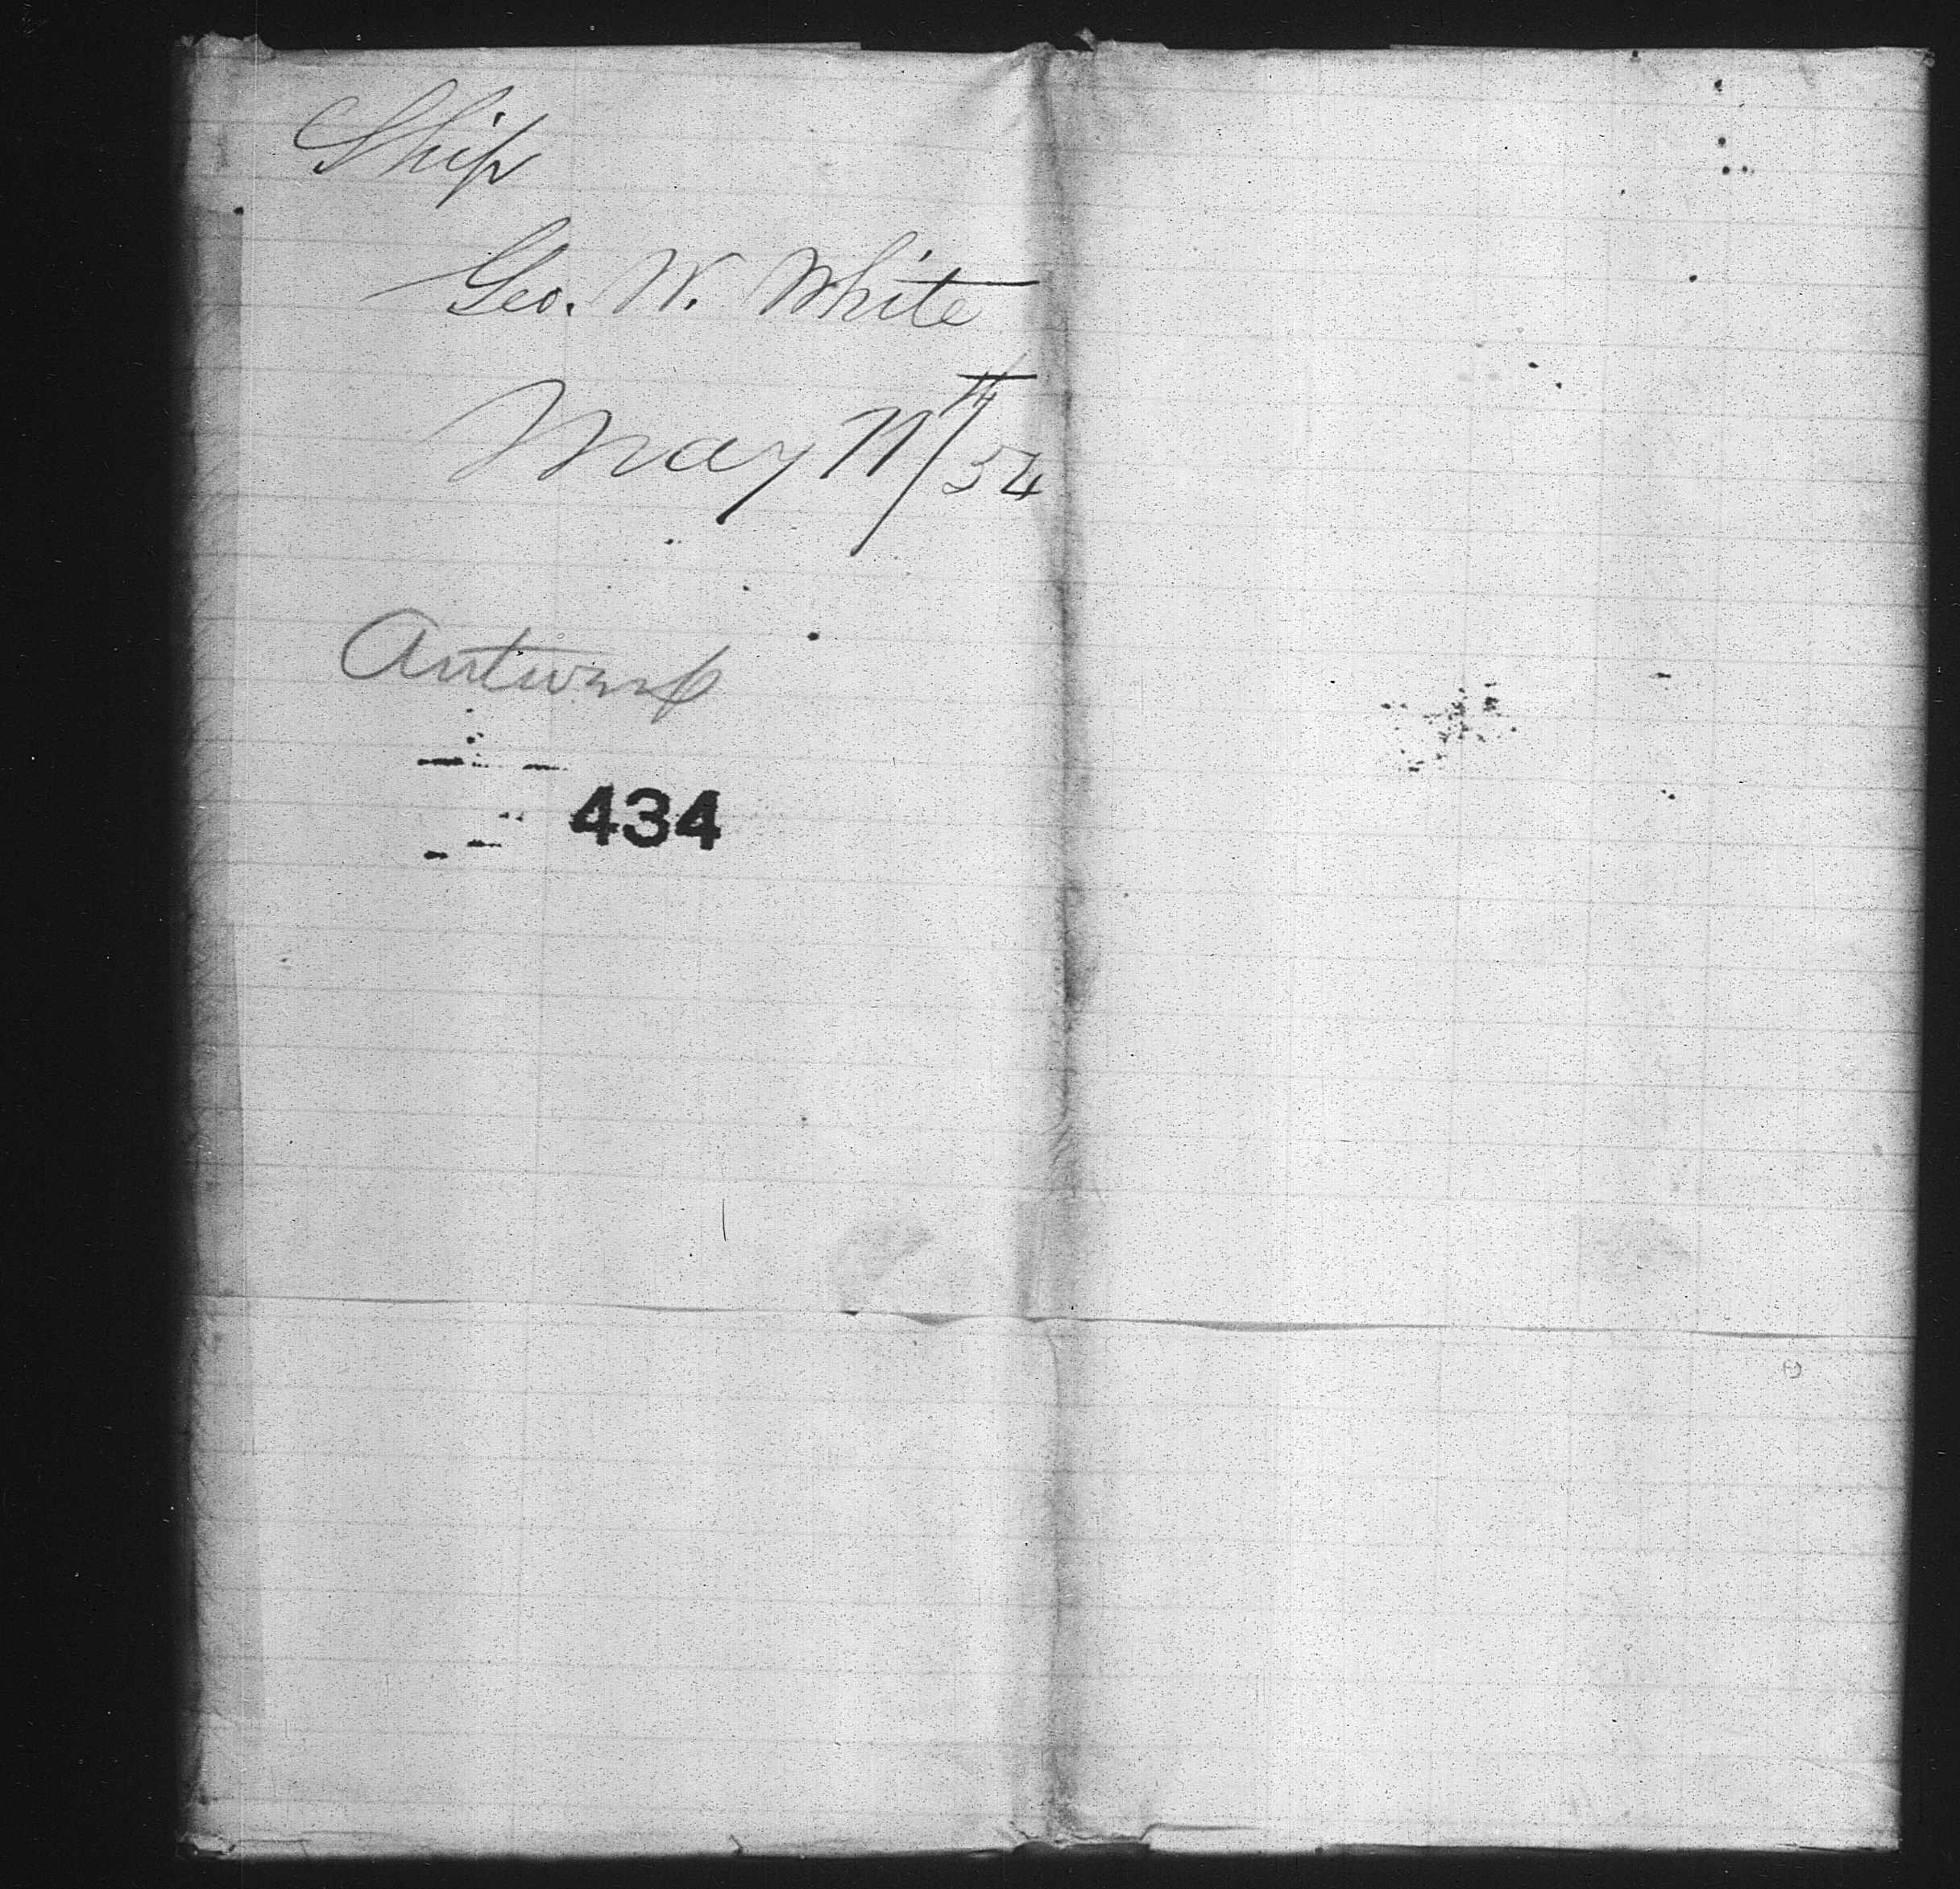 Ship
Geo. W. White
May 11th/54
Antwerp
434